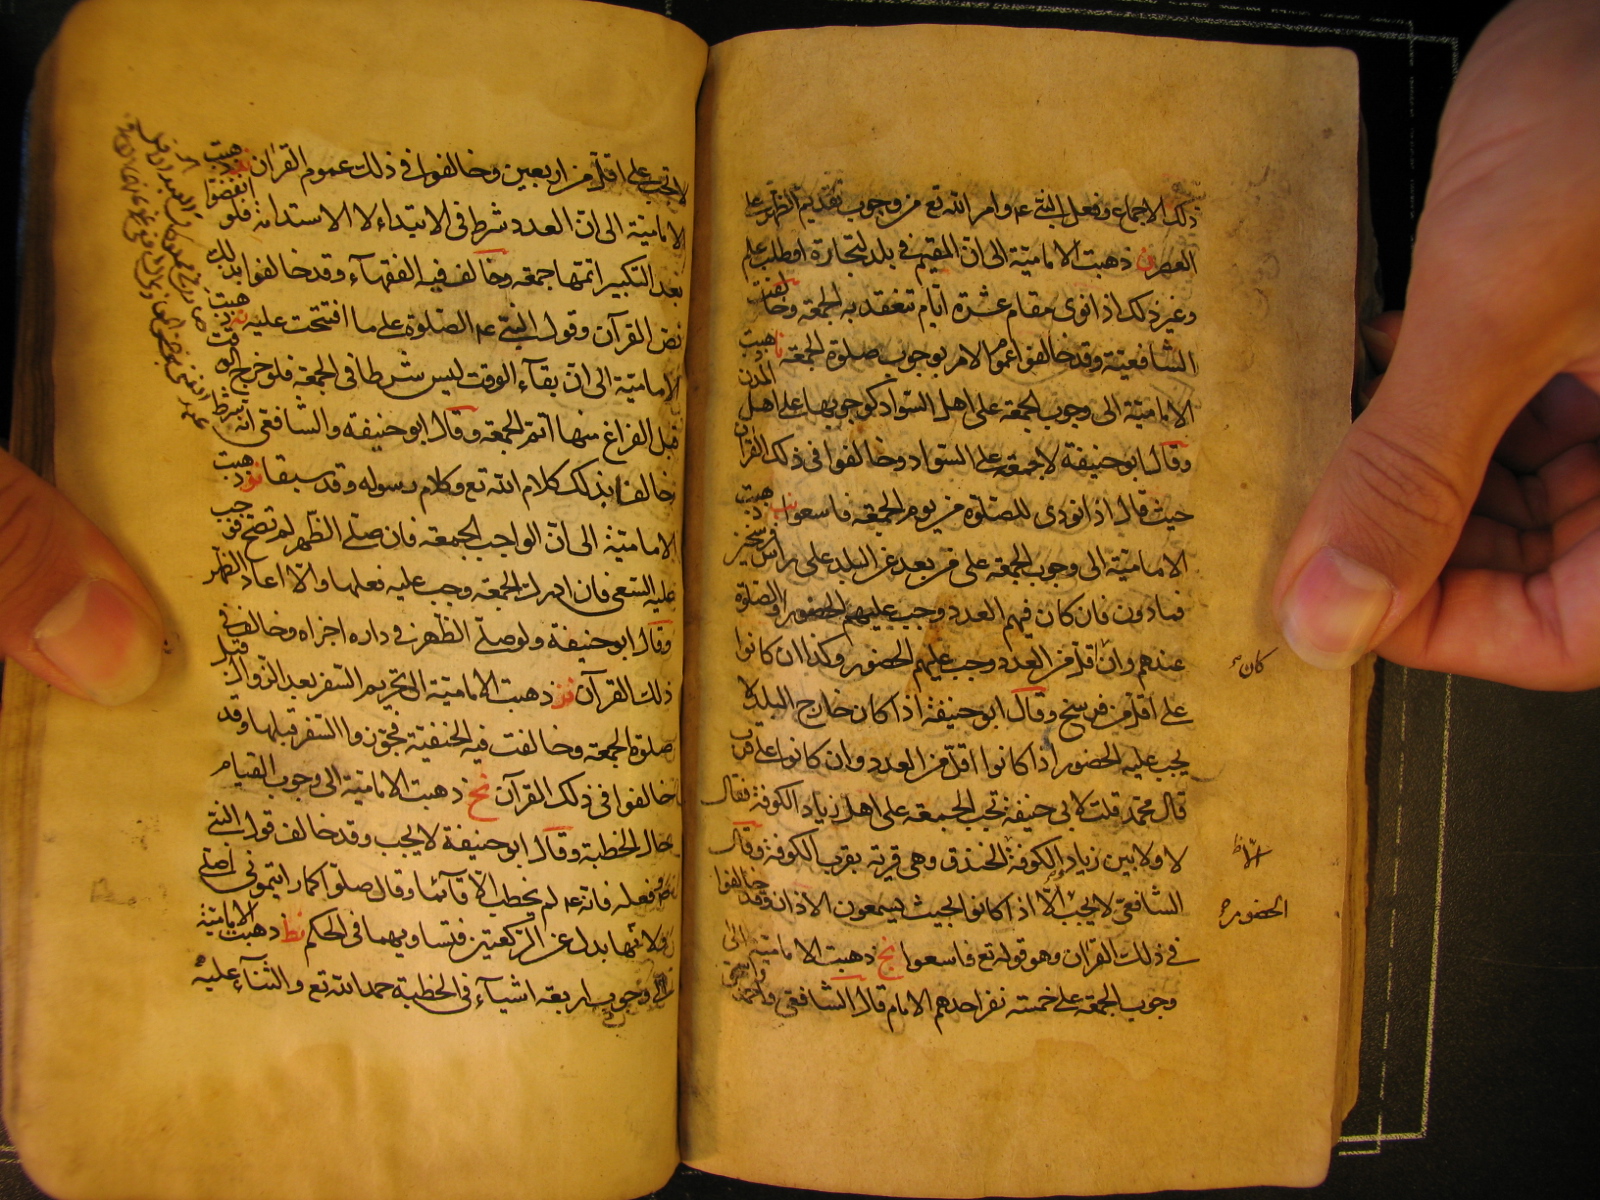 ذلك الاجماع وفعل النبي عم وامر الله تع من وجوب تقديم الظهر على
العصر ن ذهبت الامامية الى ان المقيم في بلد لتجارة او طلب علم
وغير ذلك اذا نوى مقام عشرة ايام تنعقد به الجمعة وخالفت
الشافعية وقد خالفوا عموم الامر بوجوب صلوة الجمعة نا ذهبت
الامامية الى وجوب الجمعة على اهل السواد كوجوبها على اهل المدن
وقال ابو حنيفة لا جمعة على السواد وخالفوا في ذلك القرآن
حيث قال اذا نودى للصلوة من يوم الجمعة فاسعوا نب ذهبت
الامامية الى وجوب الجمعة على من بعد عن البلد على راس فرسخين
فما دون فان كان فيهم العدد وجب عليهم الحضور او الصلوة
عندهم وان اقل من العدد وجب عليهم الحضور وكذا ان كانوا
كان
على اقل من فرسخ وقال ابو حنيفة اذا كان خارج البلد لا
يجب عليه الحضور اذا كانوا اقل من العدد وان كانوا على قرب
قال محمد قلت لابي حنيفة تجب الجمعة على اهل زياد الكوفة فقال
لا ولا بين زياد الكوفة الخندق وهي قرية بقرب الكوفة وقال
الشافعي لا يجب الا اذا كانوا بحيث يسمعون الاذان وقد خالفوا
الحضور
في ذلك القرآن وهو قوله تع فاسعوا نج ذهبت الامامية الى
وجوب الجمعة على خمسة نفر احدهم الامام قال الشافعي واحمد
لا تجب على اقل من اربعين وخالفوا في ذلك عموم القرآن ند ذهبت
الامامية الى ان العدد شرط في الابتداء لا الاستدامة فلو انفضوا
بعد التكبير اتمها جمعة وخالف فيه الفقهاء وقد خالفوا بذلك
نص القرآن وقول النبي عم الصلوة على ما افتتحت عليه نه ذهبت
الامامية الى ان بقاء الوقت ليس شرطا في الجمعة فلو خرج الوقت
قبل الفراغ منها اتم الجمعة وقال ابو حنيفة والشافعي انه شرط
خالفا بذلك كلام الله تع وكلام رسوله وقد سبقا نو ذهبت
الامامية الى ان الواجب الجمعة فان صلى الظهر لم تصح من وجب
عليه السعى فان ادرك الجمعة وجب عليه فعلها والا اعاد الظهر
وقال ابو حنيفة ولو صلى الظهر في داره اجزاه وخالف في
ذلك القرآن نز ذهبت الامامية الى تحريم السفر بعد الزوال قبل
صلوة الجمعة وخالفت فيه الحنفية فجوزوا السفر قبلها وقد
خالفوا في ذلك القرآن نح ذهبت الامامية الى وجوب القيام
حال الخطبة وقال ابو حنيفة لا يجب وقد خالف قول النبي
وفعله فانه عم لم يخطب الا قائما وقال صلوا كما رايتموني اصلي
ولانها بدل عن الركعتين فتساويهما في الحكم نط ذهبت الامامية
الى وجوب اربعة اشياء في الخطبة حمد الله تع والثناء عليه